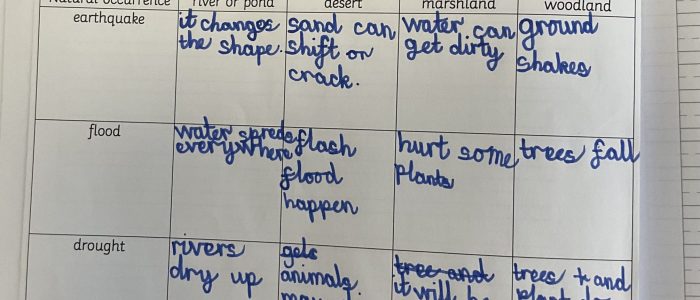 Natural occurrence river or pond desert marshland woodland
earthquake
it changes
the shape.
sand can
shift or
crack.
water can
get dirty
ground
shakes
flood
water spreds
everywhere
flash
flood
happen
hurt some
plants
trees fall
drought
rivers
dry up
gels
animals.
may
tree and
it will be
trees + and